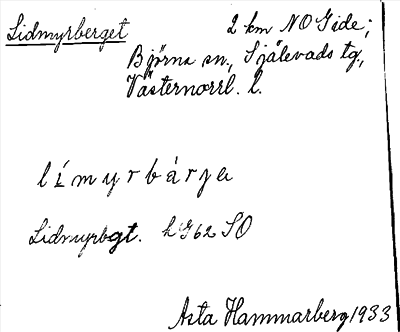 Lidmyrberget 2 km NO Gide;
Björna sn., Själevads tg.,
Västernorrl. l.
límyrbárja
Lidmyrbgt. hG62SO
Asta Hammarberg 1933